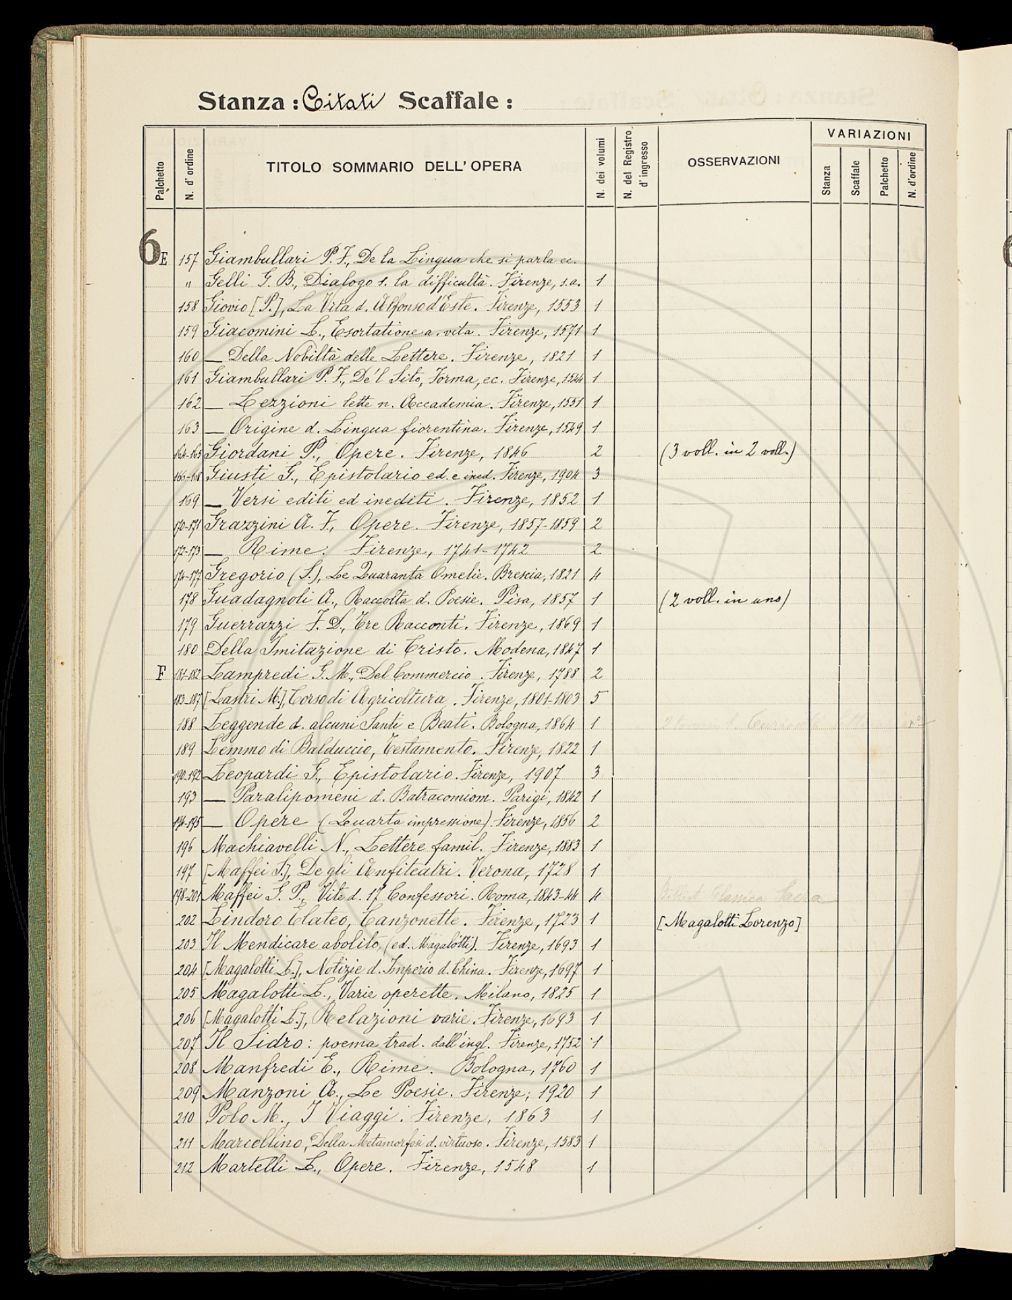 Stanza: Citati Scaffale:
Palchetto N. d'ordine TITOLO SOMMARIO DELL'OPERA N. dei volumi N. del Registro d'ingresso OSSERVAZIONI VARIAZIONI
Stanza Scaffale Palchetto N. d'ordine
6 E 157 Giambullari P. F., De la Lingua che si parla ec.
" Gelli G. B., Dialogo s. la difficultà. Firenze, s.a. 1
158 Giovio [P.], La Vita d. Alfonso d'Este. Firenze, 1553 1
159 Giacomini L., Esortatione a. vita. Firenze, 1571 1
160 — Della Nobiltà delle Lettere. Firenze, 1821 1
161 Giambullari P. F., De'l Sito, Forma, ec. Firenze, 1544 1
162 — Lezzioni lette n. Accademia. Firenze, 1551 1
163 — Origine d. Lingua fiorentina. Firenze, 1549 1
164-165 Giordani P., Opere. Firenze, 1846 2 (3 voll. in 2 voll.)
166-168 Giusti G., Epistolario ed. e ined. Firenze, 1904 3
169 — Versi editi ed inediti. Firenze, 1852 1
170-171 Grazzini A. F., Opere. Firenze, 1857-1859 2
172-173 — Rime. Firenze, 1741-1742 2
174-177 Gregorio (S.), Le Quaranta Omelie. Brescia, 1821 4
178 Guadagnoli A., Raccolta d. Poesie. Pisa, 1857 1 (2 voll. in uno)
179 Guerrazzi F. D., Tre Racconti. Firenze, 1869 1
180 Della Imitazione di Cristo. Modena, 1847 1
F 181-182 Lampredi G. M., Del Commercio. Firenze, 1788 2
183-187 [Lastri M.], Corso di Agricoltura. Firenze, 1801-1803 5
188 Leggende d. alcuni Santi e Beati. Bologna, 1864 1
189 Lemmo di Balduccio, Testamento. Firenze, 1822 1
190-192 Leopardi G., Epistolario. Firenze, 1907 3
193 — Paralipomeni d. Batracomiom. Parigi, 1842 1
194-195 — Opere (Quarta impressione) Firenze, 1856 2
196 Machiavelli N., Lettere famil. Firenze, 1883 1
197 [Maffei S.], De gli Anfiteatri. Verona, 1728 1
198-201 Maffei G. P., Vite d. 17 Confessori. Roma, 1843-44 4
202 Lindoro Elateo, Canzonette. Firenze, 1723 1 [Magalotti Lorenzo]
203 Il Mendicare abolito, (ed. Magalotti). Firenze, 1693 1
204 [Magalotti L.], Notizie d. Imperio d. China. Firenze, 1697 1
205 Magalotti L., Varie operette. Milano, 1825 1
206 [Magalotti L.], Relazioni varie. Firenze, 1693 1
207 Il Sidro: poema trad. dall'ingl. Firenze, 1752 1
208 Manfredi E., Rime. Bologna, 1760 1
209 Manzoni A., Le Poesie. Firenze, 1920 1
210 Polo M., I Viaggi. Firenze, 1863 1
211 Marcellino, Della Metamorfosi d. virtuoso. Firenze, 1583 1
212 Martelli L., Opere. Firenze, 1548 1